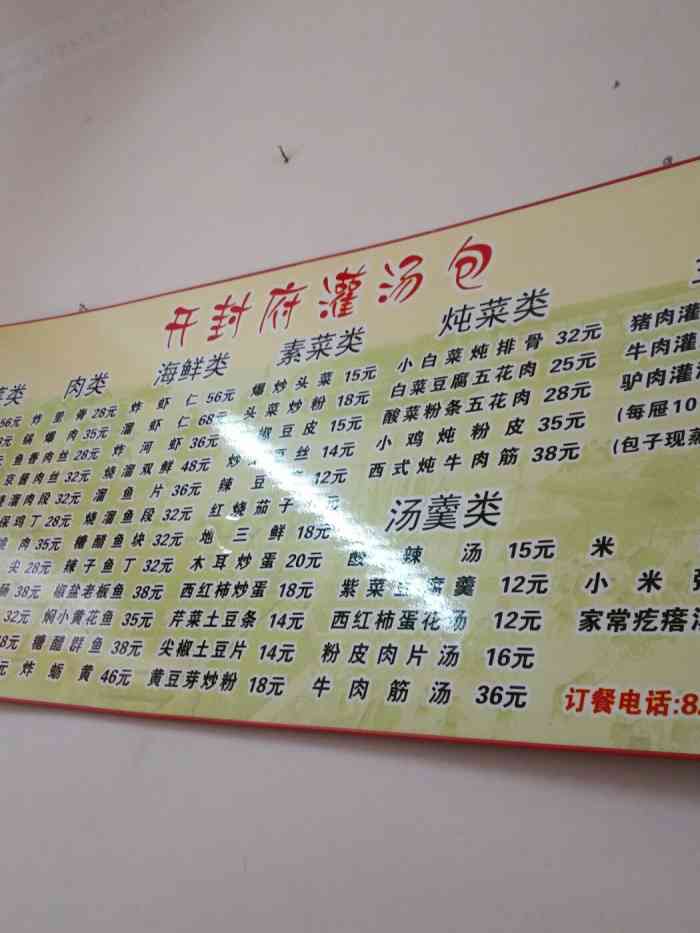 开封府灌汤包
菜类
肉类
56元 炸里脊28元
锅爆肉35元
鱼香肉丝28元
京酱肉丝32元
溜肉段32元
保鸡丁28元
肉35元
尖28元
肠38元
32元
38元
元
海鲜类
炸虾仁56元
溜虾仁68元
炸河虾36元
烧溜双鲜48元
溜鱼片36元
烧溜鱼段32元
糖醋鱼块32元
辣子鱼丁32元
椒盐老板鱼38元
焖小黄花鱼35元
糖醋群鱼38元
炸蛎黄46元
素菜类
爆炒头菜15元
头菜炒粉18元
椒豆皮15元
炒土豆丝14元
辣豆腐12元
红烧茄子
地三鲜18元
木耳炒蛋20元
西红柿炒蛋18元
芹菜土豆条14元
尖椒土豆片14元
黄豆芽炒粉18元
炖菜类
小白菜炖排骨32元
白菜豆腐五花肉25元
酸菜粉条五花肉28元
小鸡炖粉皮35元
西式炖牛肉筋38元
汤羹类
酸辣汤15元
紫菜豆腐羹12元
西红柿蛋花汤12元
粉皮肉片汤16元
牛肉筋汤36元
猪肉灌
牛肉灌
驴肉灌汤
(每屉10
(包子现蒸
米
小米
家常疙瘩汤
订餐电话:8